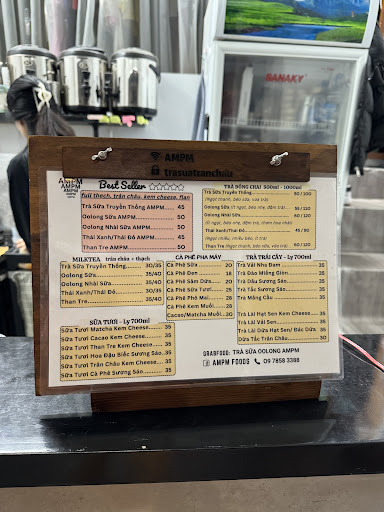 SANAKY
AMPM
trasuatranchau
AMPM
AMPM
AMPM
AMPM
Best Seller
full thạch, trân châu, kem cheese, flan
Trà Sữa Truyền Thống AMPM 45
Oolong Sữa AMPM 50
Oolong Nhài Sữa AMPM 50
Thái Xanh/Thái Đỏ AMPM 45
Than Tre AMPM 50
TRÀ ĐÓNG CHAI 500ml - 1000ml
Trà Sữa Truyền Thống 50/100
(Ngọt thanh, béo sữa, vừa trà)
Oolong Sữa 60/120
Oolong Nhài Sữa 60/120
Thái Xanh/Thái Đỏ 45/90
(Ngọt nhiều, nhiều béo, ít trà)
Than Tre
MILKTEA trân châu + thạch
Trà Sữa Truyền Thống 30/35
Oolong Sữa 35/40
Oolong Nhài Sữa 35/40
Thái Xanh/Thái Đỏ 30/35
Than Tre 35/40
CÀ PHÊ PHA MÁY
Cà Phê Sữa 20
Cà Phê Đen 18
Cà Phê Sầm Dứa 20
Cà Phê Sữa Tươi 25
Cà Phê Phô Mai 28
Cà Phê Kem Muối 28
Cacao/Matcha Muối 30
TRÀ TRÁI CÂY - Ly 700ml
Trà Vải Nha Đam 35
Trà Đào Miếng Giòn 35
Trà Dâu Sương Sáo 35
Trà Tắc Sương Sáo 35
Trà Mãng Cầu 35
Trà Lài Hạt Sen Kem Cheese 35
Trà Lài Vải Sen 35
Trà Lài Dứa Hạt Sen/ Đác Dứa 35
Dừa Tắc Trân Châu 30
SỮA TƯƠI - Ly 700ml
Sữa Tươi Matcha Kem Cheese 35
Sữa Tươi Cacao Kem Cheese 35
Sữa Tươi Than Tre Kem Cheese 35
Sữa Tươi Hoa Đậu Biếc Sương Sáo 35
Sữa Tươi Trân Châu Kem Cheese 35
Sữa Tươi Cà Phê Sương Sáo 35
GRABFOOD: TRÀ SỮA OOLONG AMPM
AMPM FOODS 09 7858 3388